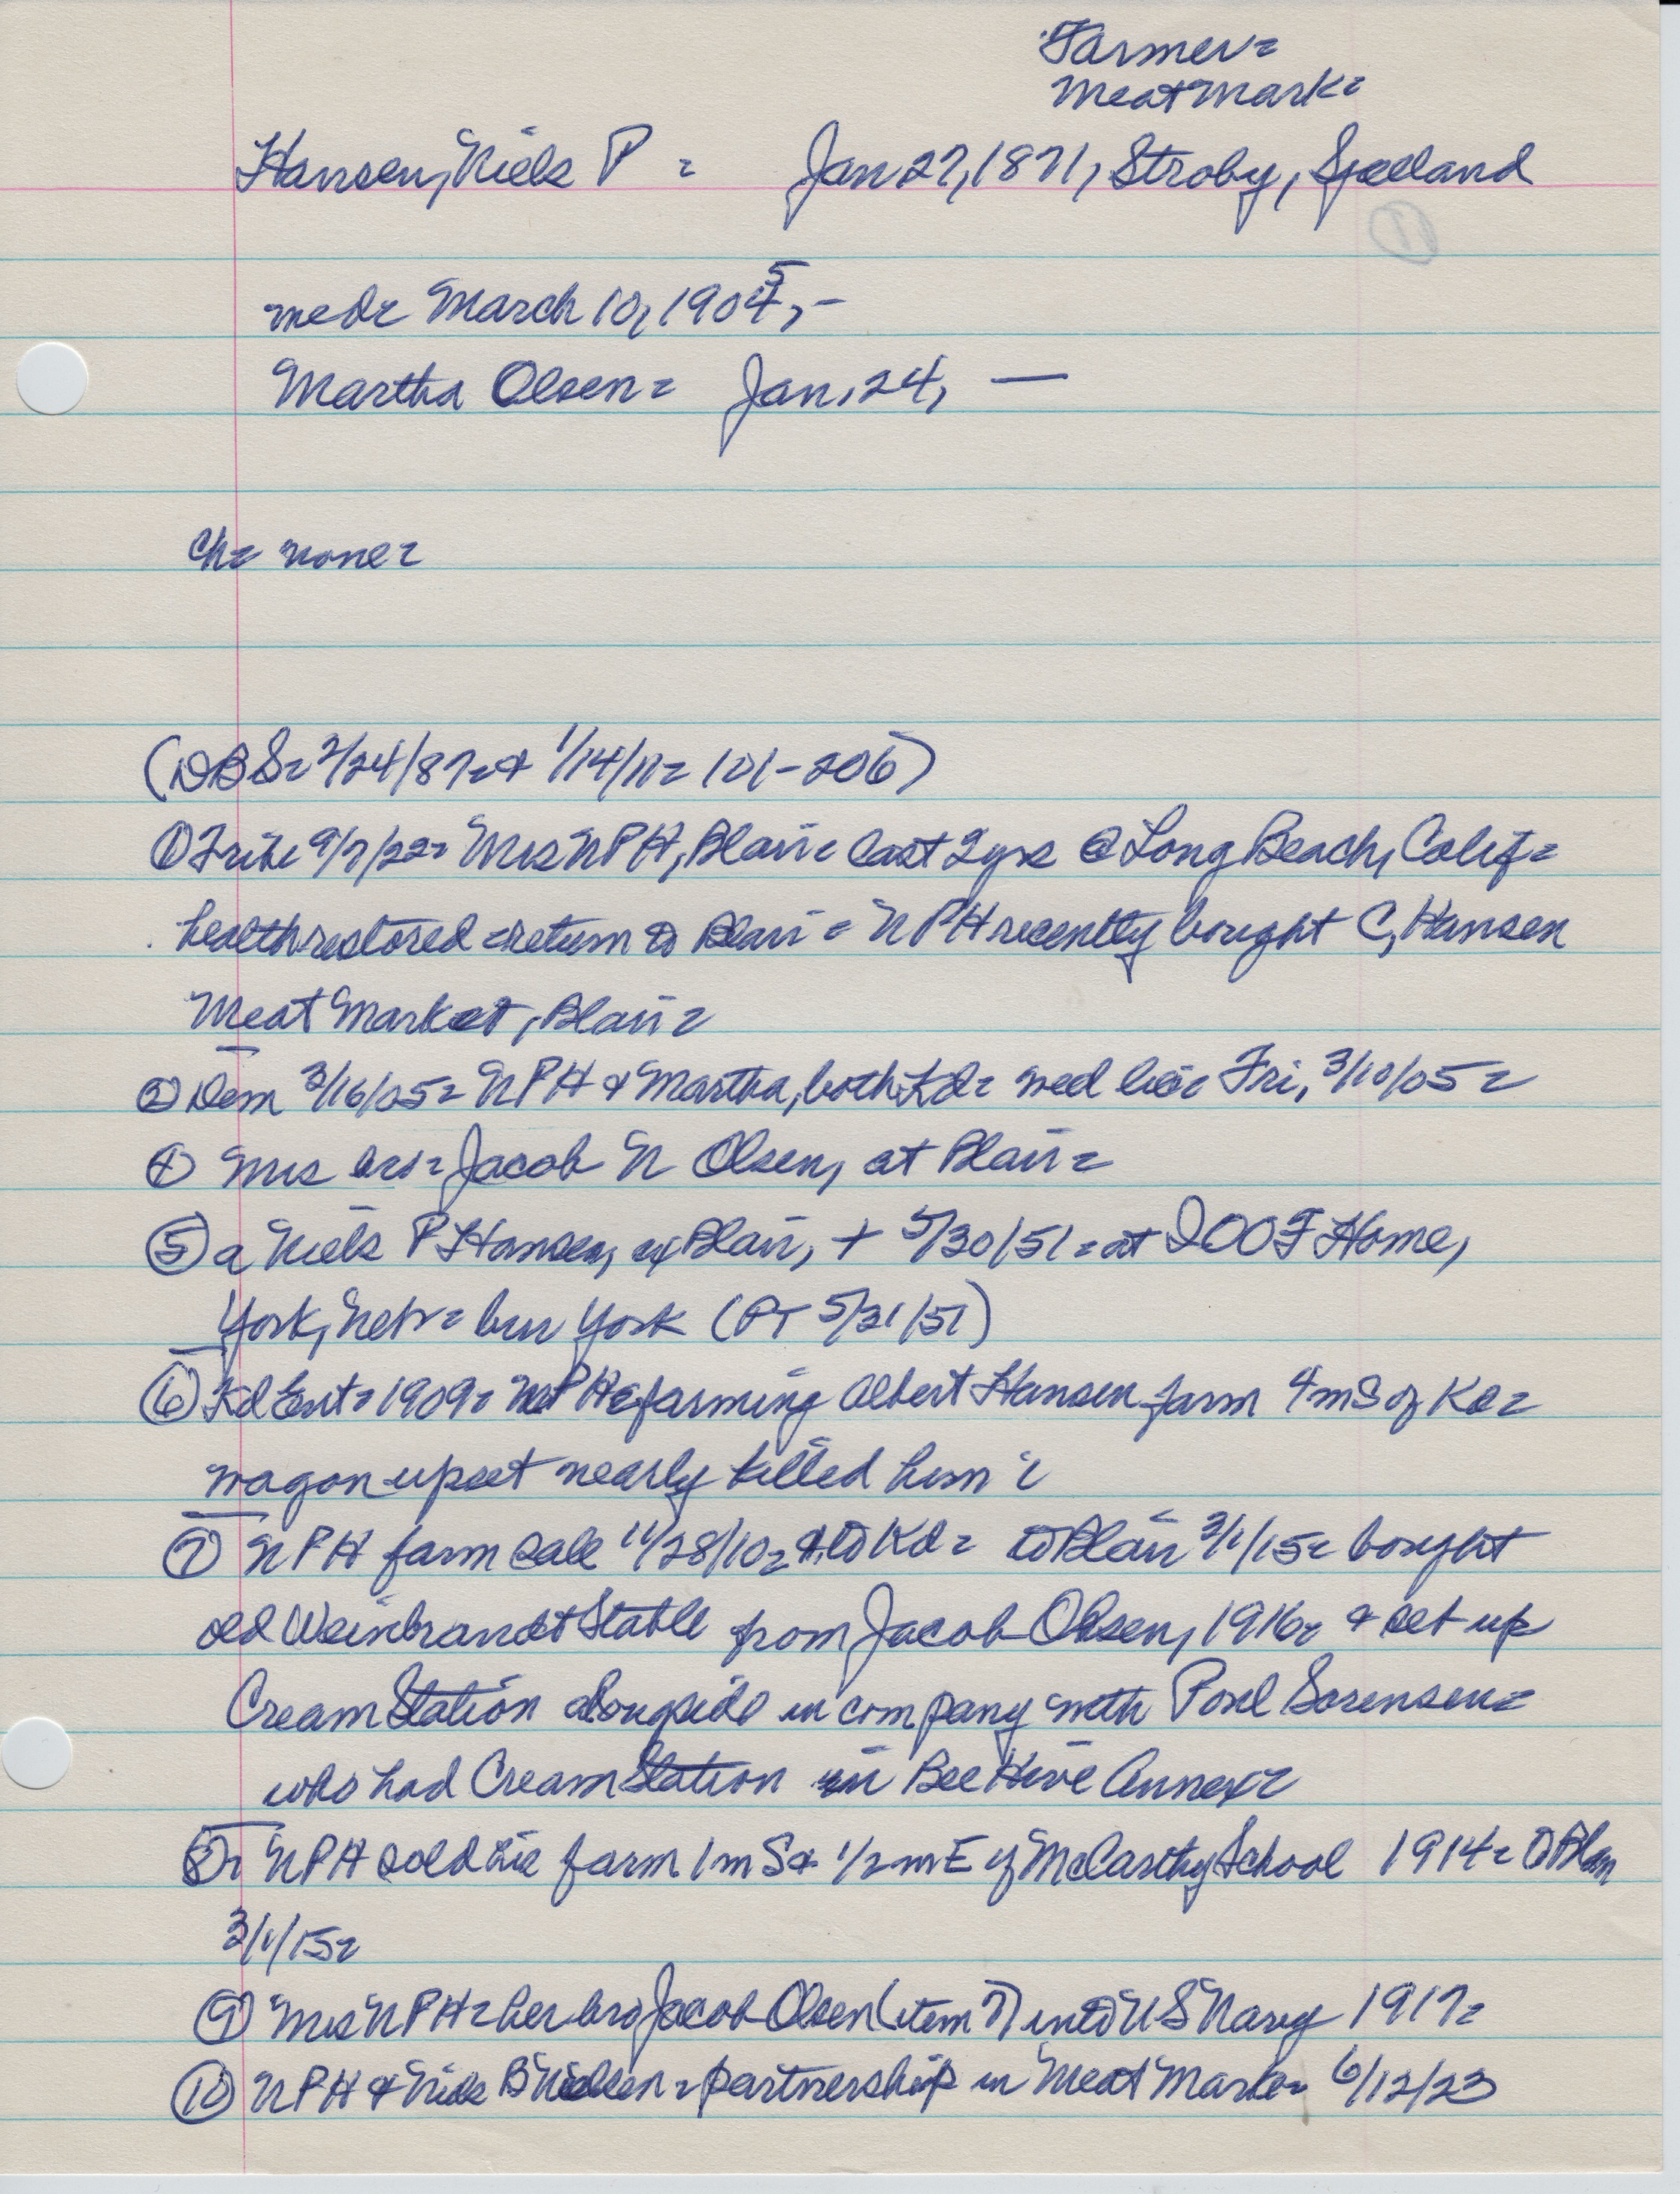 Farmer=
Meat Mark=
Hansen, Niels P = Jan 27, 1871, Stroby, Sjaelland
11
wed= March 10, 1905, -
Martha Olsen = Jan, 24, —
Ch= none=
(DBS= 2/24/87= & 1/14/11= 101-206)
① Trib= 9/7/22= Mrs NPH, Blair= last 2 yrs @ Long Beach, Calif=
health restored = return to Blair = NPH recently bought C, Hansen
Meat Market, Blair=
② Dem 3/16/05= NPH & Martha, both Kd= wed here Fri, 3/10/05=
④ Mrs bro= Jacob N Olsen, at Blair=
⑤ a Niels P Hansen, ex Blair, + 5/30/51= at IOOF Home,
York, Nebr= bur York (PT 5/31/51)
⑥ Kd Ent= 1909= NPH= farming Albert Hansen farm 4 m S of Kd=
wagon upset nearly killed him=
⑦ NPH farm sale 11/28/10= & to Kd= to Blair 3/1/15= bought
old Weinbrandt Stable from Jacob Olsen, 1916= & set up
Cream Station alongside in company with Poul Sorensen=
who had Cream Station in Bee Hive Annex=
⑧= NPH sold his farm 1 m S & 1/2 m E of McCarthy School 1914= to Blair
3/1/15=
⑨ Mrs NPH= her bro Jacob Olsen (item 7) into US Navy 1917=
⑩ NPH & Niels B Nielsen= partnership in Meat Mark= 6/12/23